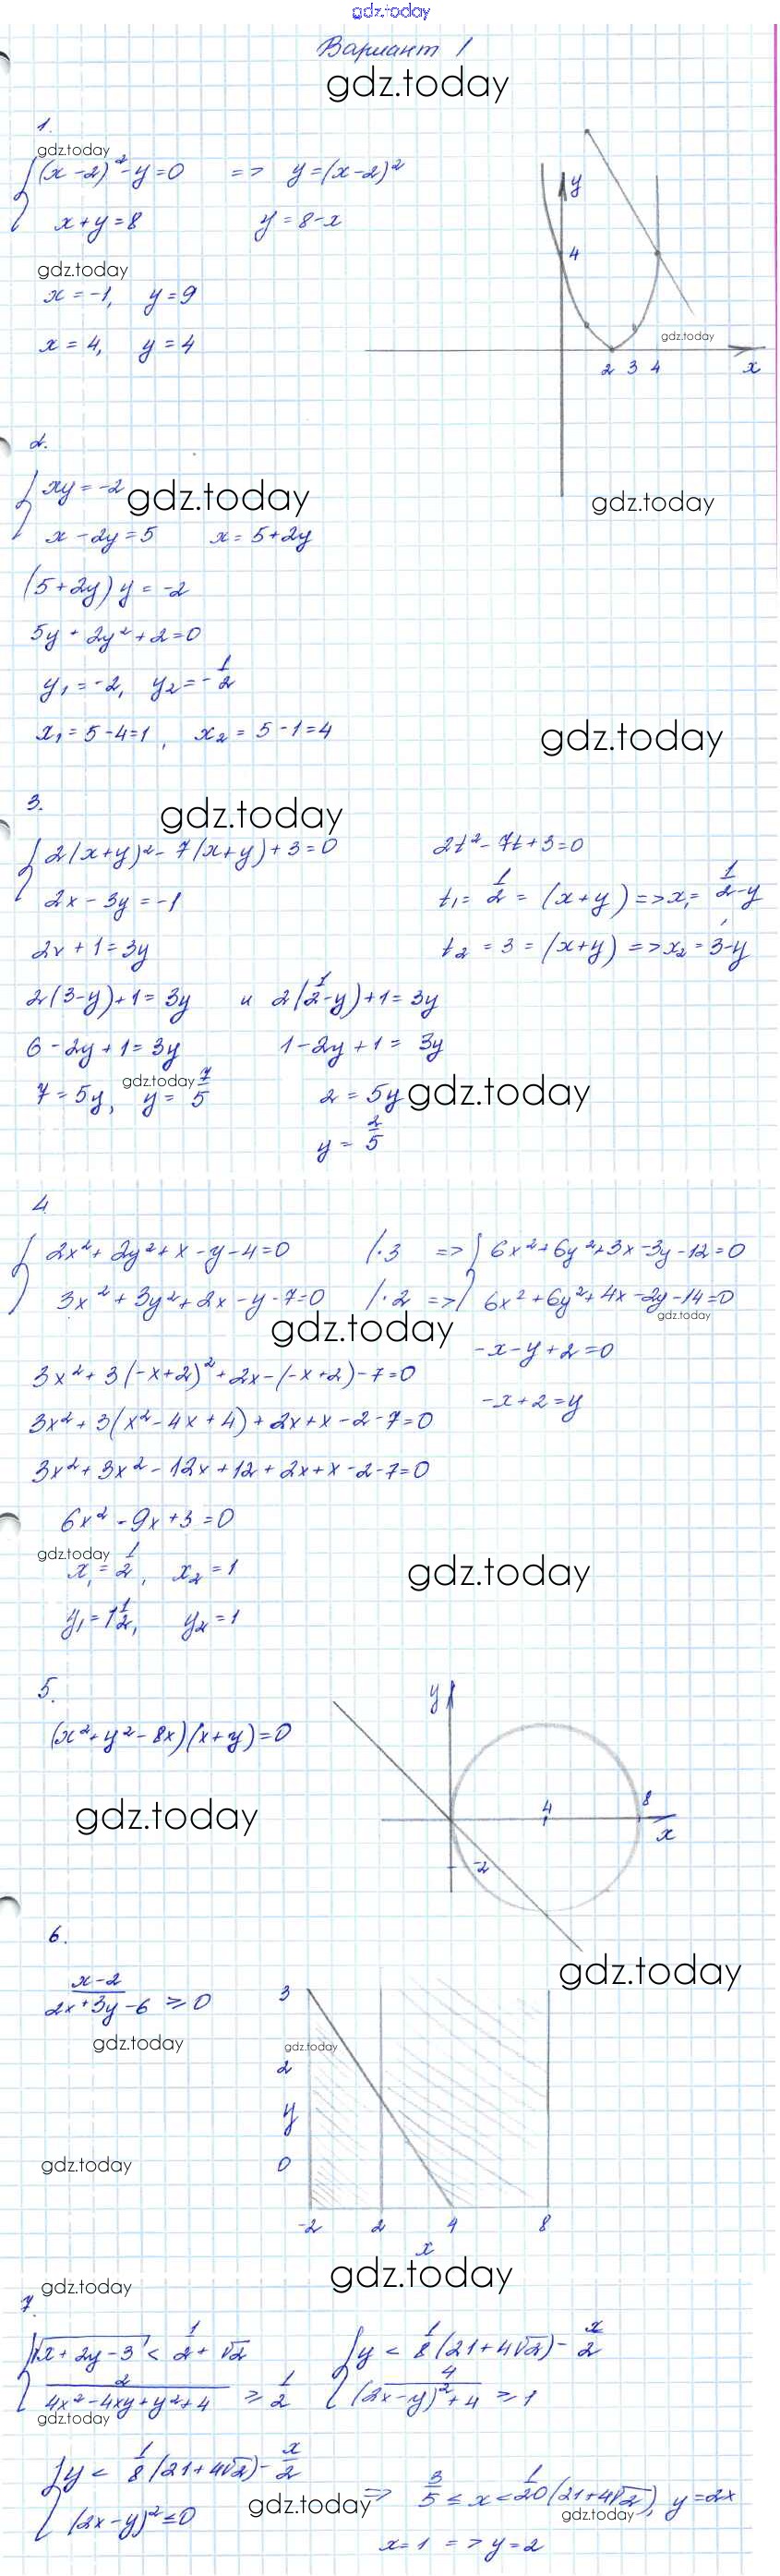 gdz.today
Вариант 1
gdz.today
1.
gdz.today
(x-2)²-y=0 => y=(x-2)²
x+y=8 y=8-x
gdz.today
x=-1, y=9
x=4, y=4
y
4
gdz.today
2 3 4 x
2.
xy=-2
gdz.today
gdz.today
x-2y=5 x=5+2y
(5+2y)y=-2
5y+2y²+2=0
y₁=-2, y₂=-1/2
x₁=5-4=1, x₂=5-1=4
gdz.today
3.
gdz.today
2(x+y)²-7(x+y)+3=0 2t²-7t+3=0
2x-3y=-1 t₁=1/2=(x+y)=>x₁=1/2-y
2x+1=3y t₂=3=(x+y)=>x₂=3-y
2(3-y)+1=3y и 2(1/2-y)+1=3y
6-2y+1=3y 1-2y+1=3y
7=5y, y=7/5 2=5y
gdz.today
gdz.today
y=2/5
4
2x²+2y²+x-y-4=0 |·3 => 6x²+6y²+3x-3y-12=0
3x²+3y²+2x-y-7=0 |·2 => 6x²+6y²+4x-2y-14=0
gdz.today
gdz.today
-x-y+2=0
3x²+3(-x+2)²+2x-(-x+2)-7=0
-x+2=y
3x²+3(x²-4x+4)+2x+x-2-7=0
3x²+3x²-12x+12+2x+x-2-7=0
6x²-9x+3=0
gdz.today
x₁=1/2, x₂=1
gdz.today
y₁=1 1/2, y₂=1
5.
y
(x²+y²-8x)(x+y)=0
gdz.today
4 8
x
-2
6.
gdz.today
(x-2)/(2x+3y-6) ≥ 0
3
gdz.today
gdz.today
2
y
gdz.today
0
-2 2 4 8
x
gdz.today
gdz.today
7.
√(x+2y-3) < 1/2+√2 y < 1/8(21+4√2)-x/2
2/(4x²-4xy+y²+4) ≥ 1/2 4/((2x-y)²+4) ≥ 1
gdz.today
y < 1/8(21+4√2)-x/2
(2x-y)²≤0 => 3/5 ≤ x < 1/20(21+4√2), y=2x
gdz.today
gdz.today
x=1 => y=2